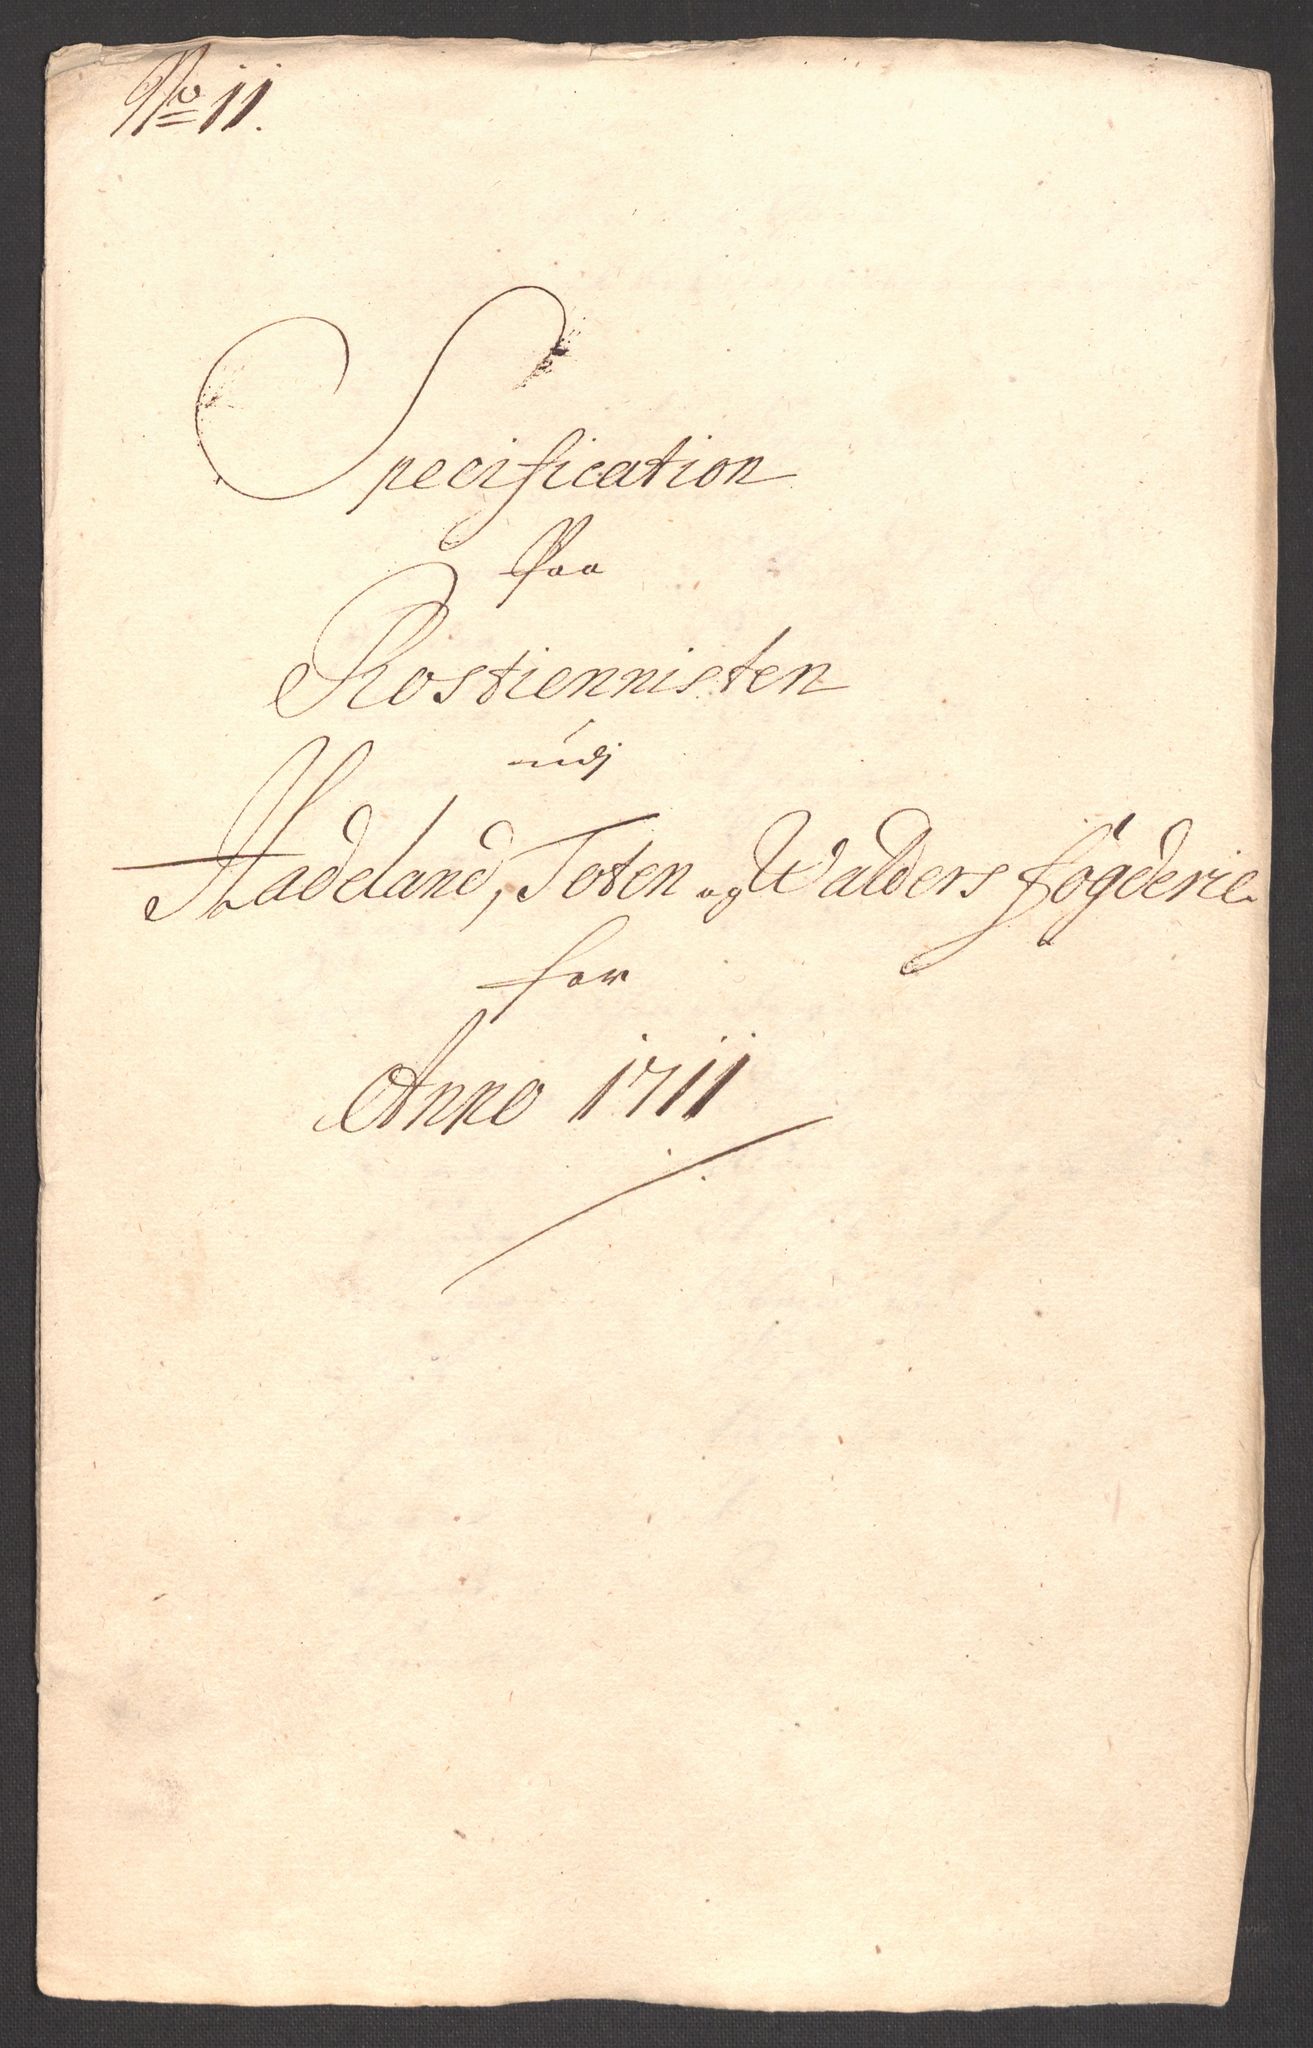 No 11.
Specification
Paa
Rostiennisten
udj
Hadeland, Toten og Walders fögderie
for
Anno 1711